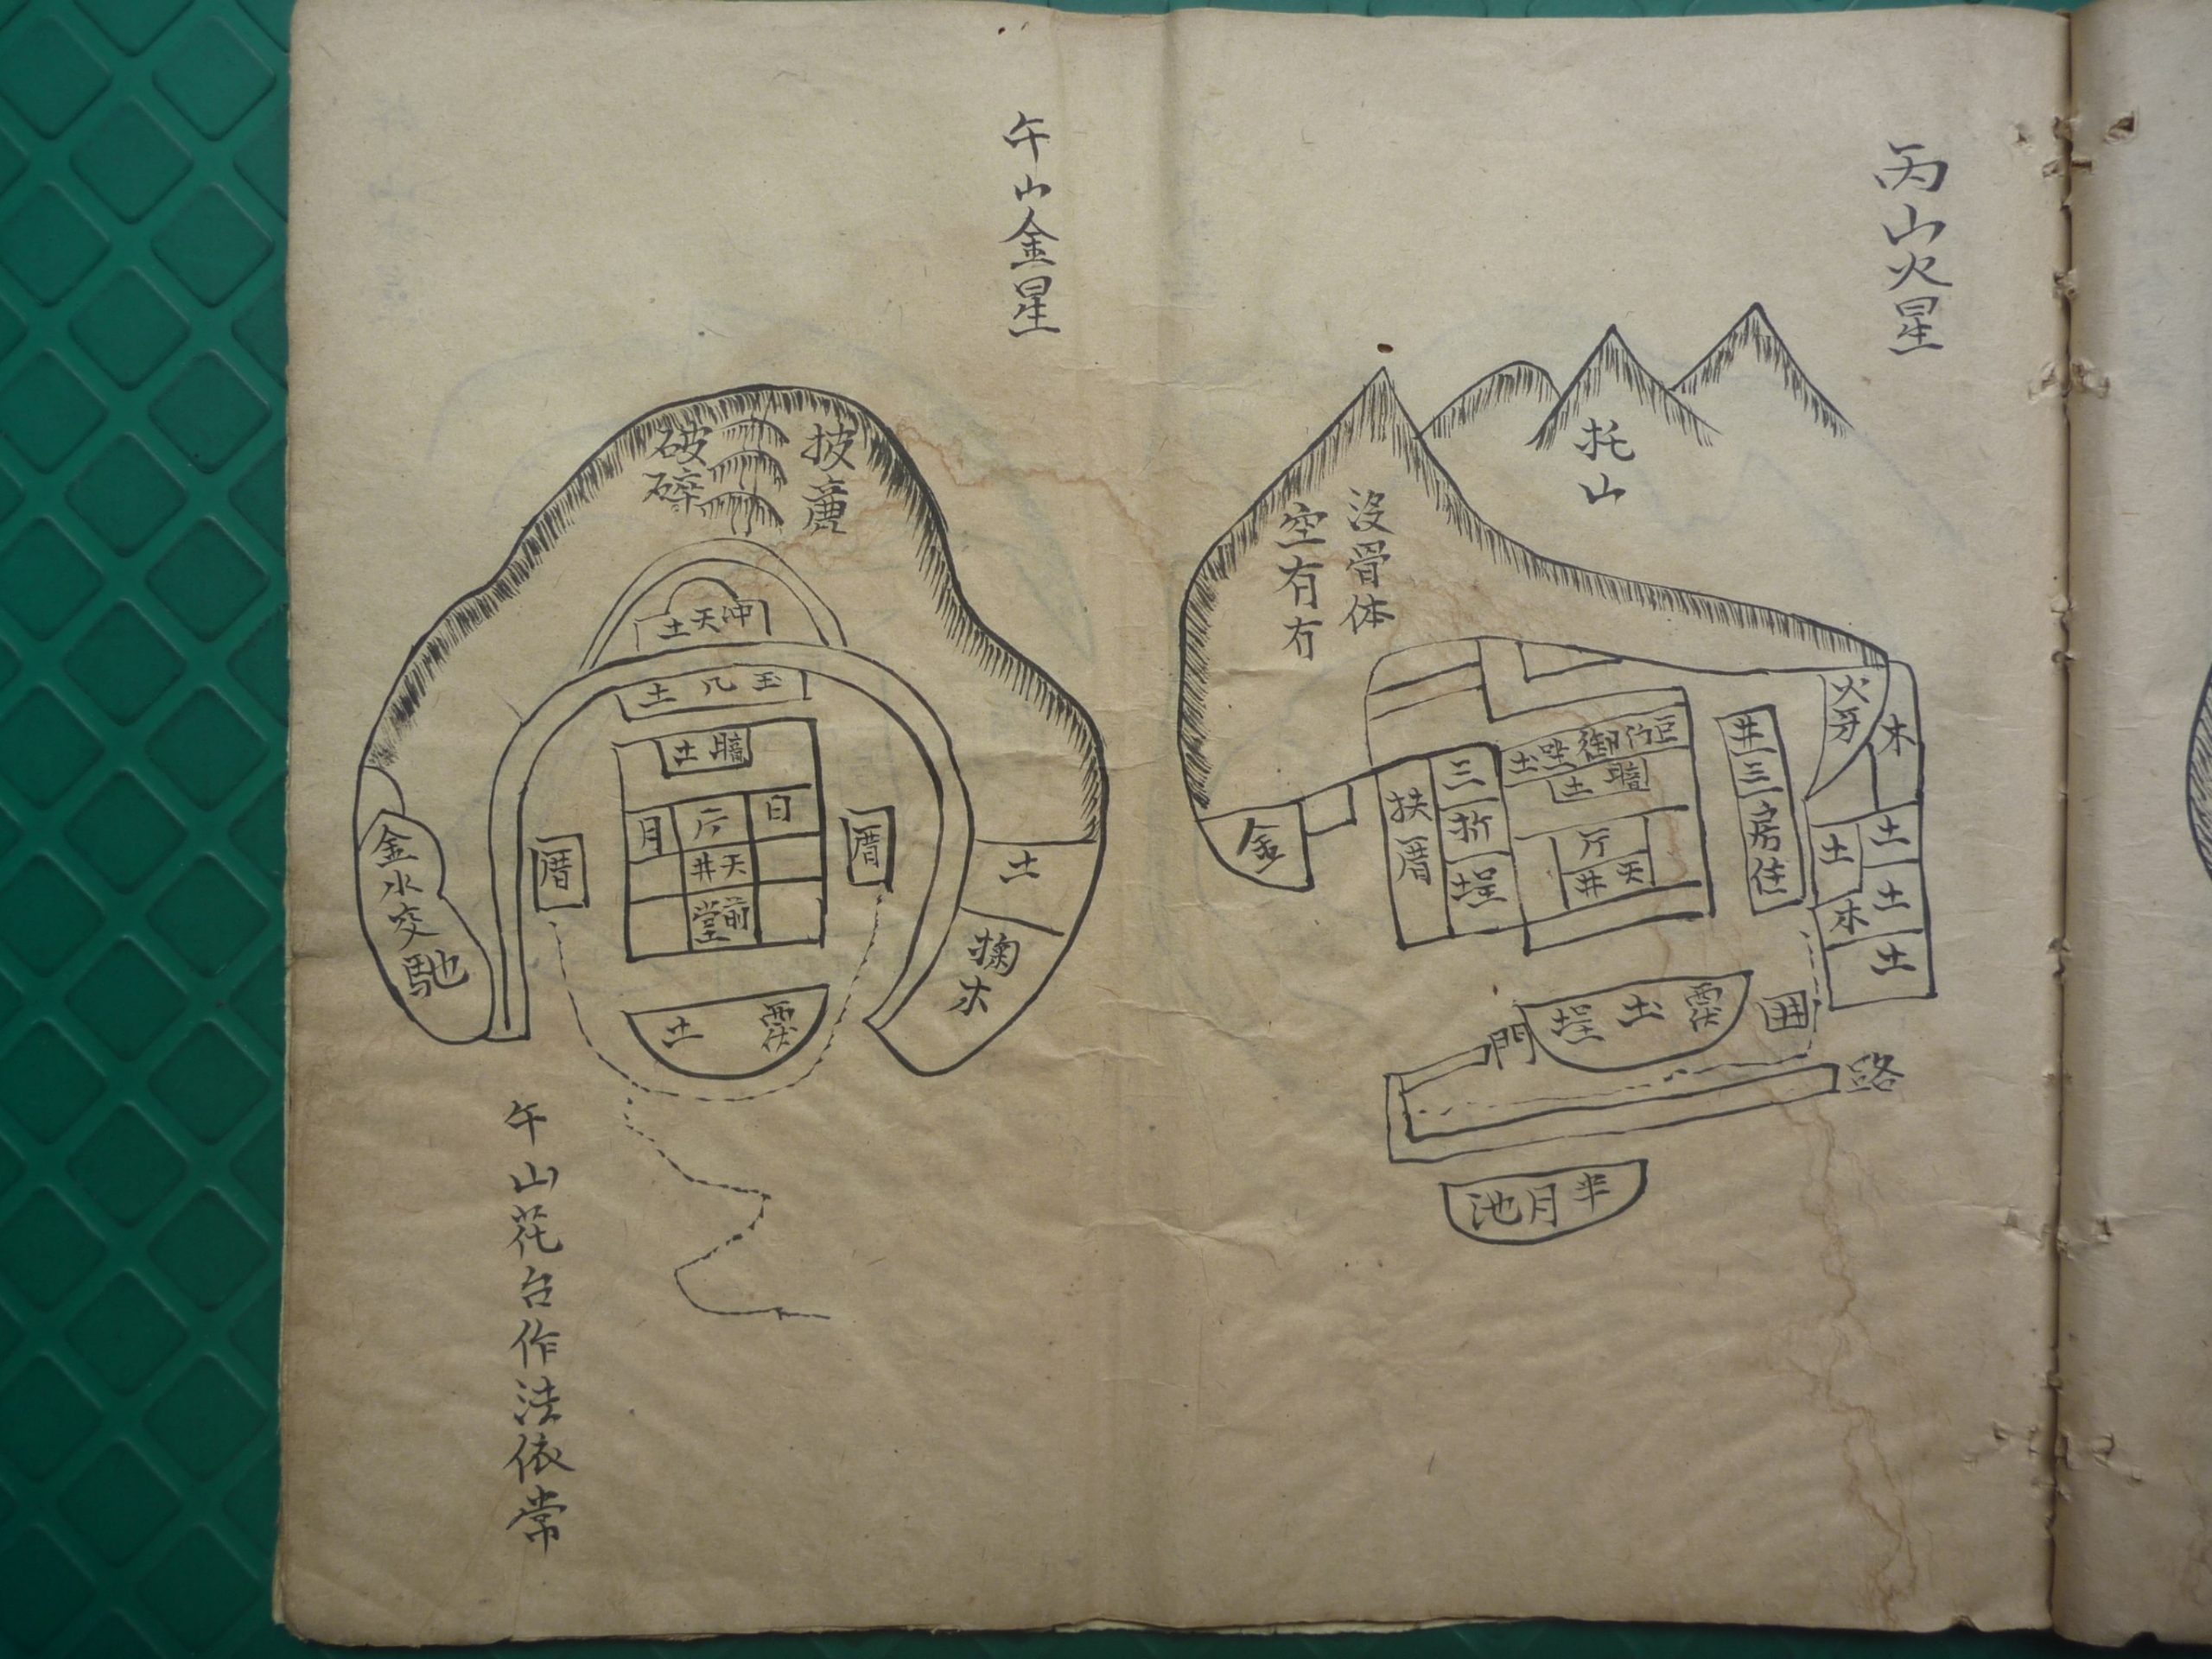 丙山火星
托山
沒骨体
空有冇
火牙
木
土
土
土
木
土
井三房住
巨竹御坐土
土
厅
天井
三折埕
扶厝
金
覆土埕
囲
門
路
半月池
午山金星
披
破碎
冲天土
玉几土
土
日
厅
月
天井
前堂
厝
厝
土
掬木
覆土
金水交馳
午山花台作法依常